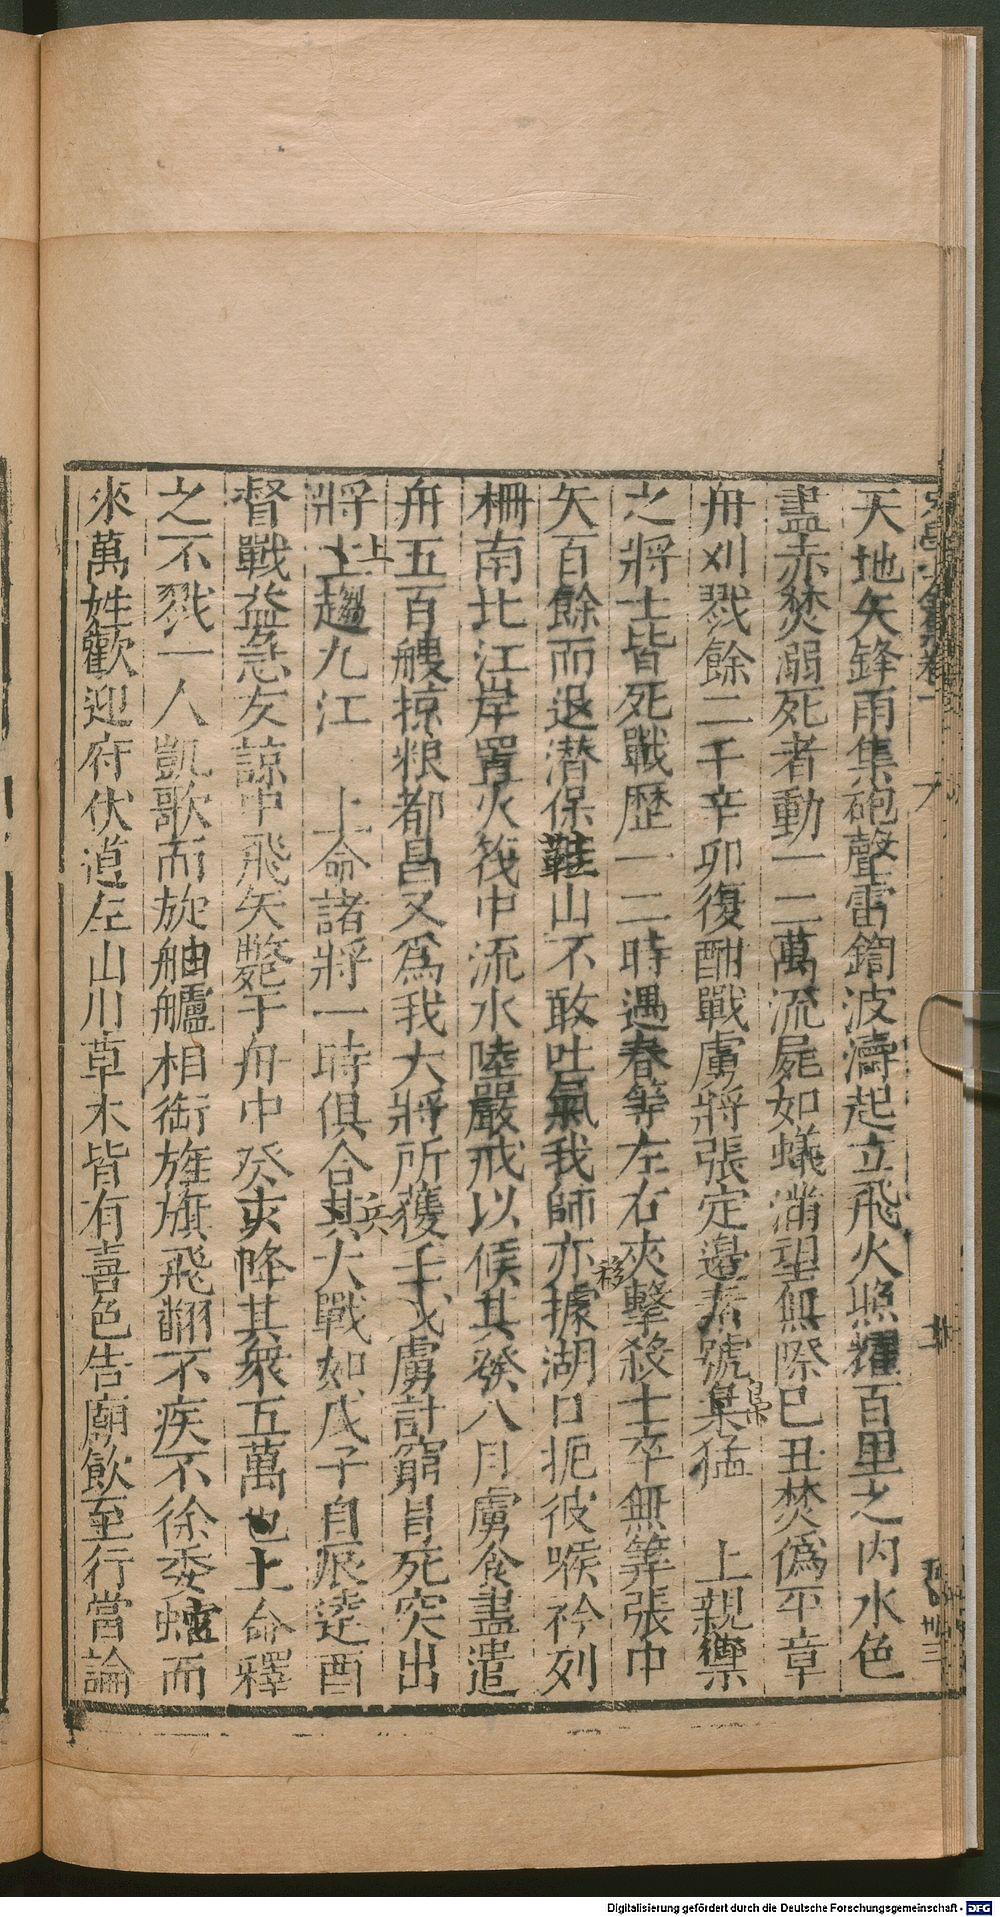 天地矢鋒雨集砲聲雷鍧波濤起立飛火照耀百里之內水色
盡赤焚溺死者動一二萬流屍如蟻滿望無際巳丑焚僞平章
舟刈戮餘二千辛卯復酣戰虜將張定邊素號梟猛　上親禦
之將士皆死戰歷一二時遇春等左右夾擊殺士卒無筭張中
矢百餘而退潛保鞋山不敢吐氣我師亦據湖口扼彼喉衿列
移
柵南北江岸置火筏中流水陸嚴戒以候其發八月虜食盡遣
舟五百艘掠粮都昌又爲我大將所獲壬戌虜計窮冒死突出
將士趨九江　上命諸將一時俱合其大戰如戊子自辰逹酉
上
兵
督戰益急友諒中飛矢斃于舟中癸亥降其衆五萬也上命釋
之不戮一人凱歌而旋舳艫相銜旌旗飛翻不疾不徐委蛇而
來萬姓歡迎府伏道左山川草木皆有喜色告廟飲至行當論
Digitalisierung gefördert durch die Deutsche Forschungsgemeinschaft - DFG